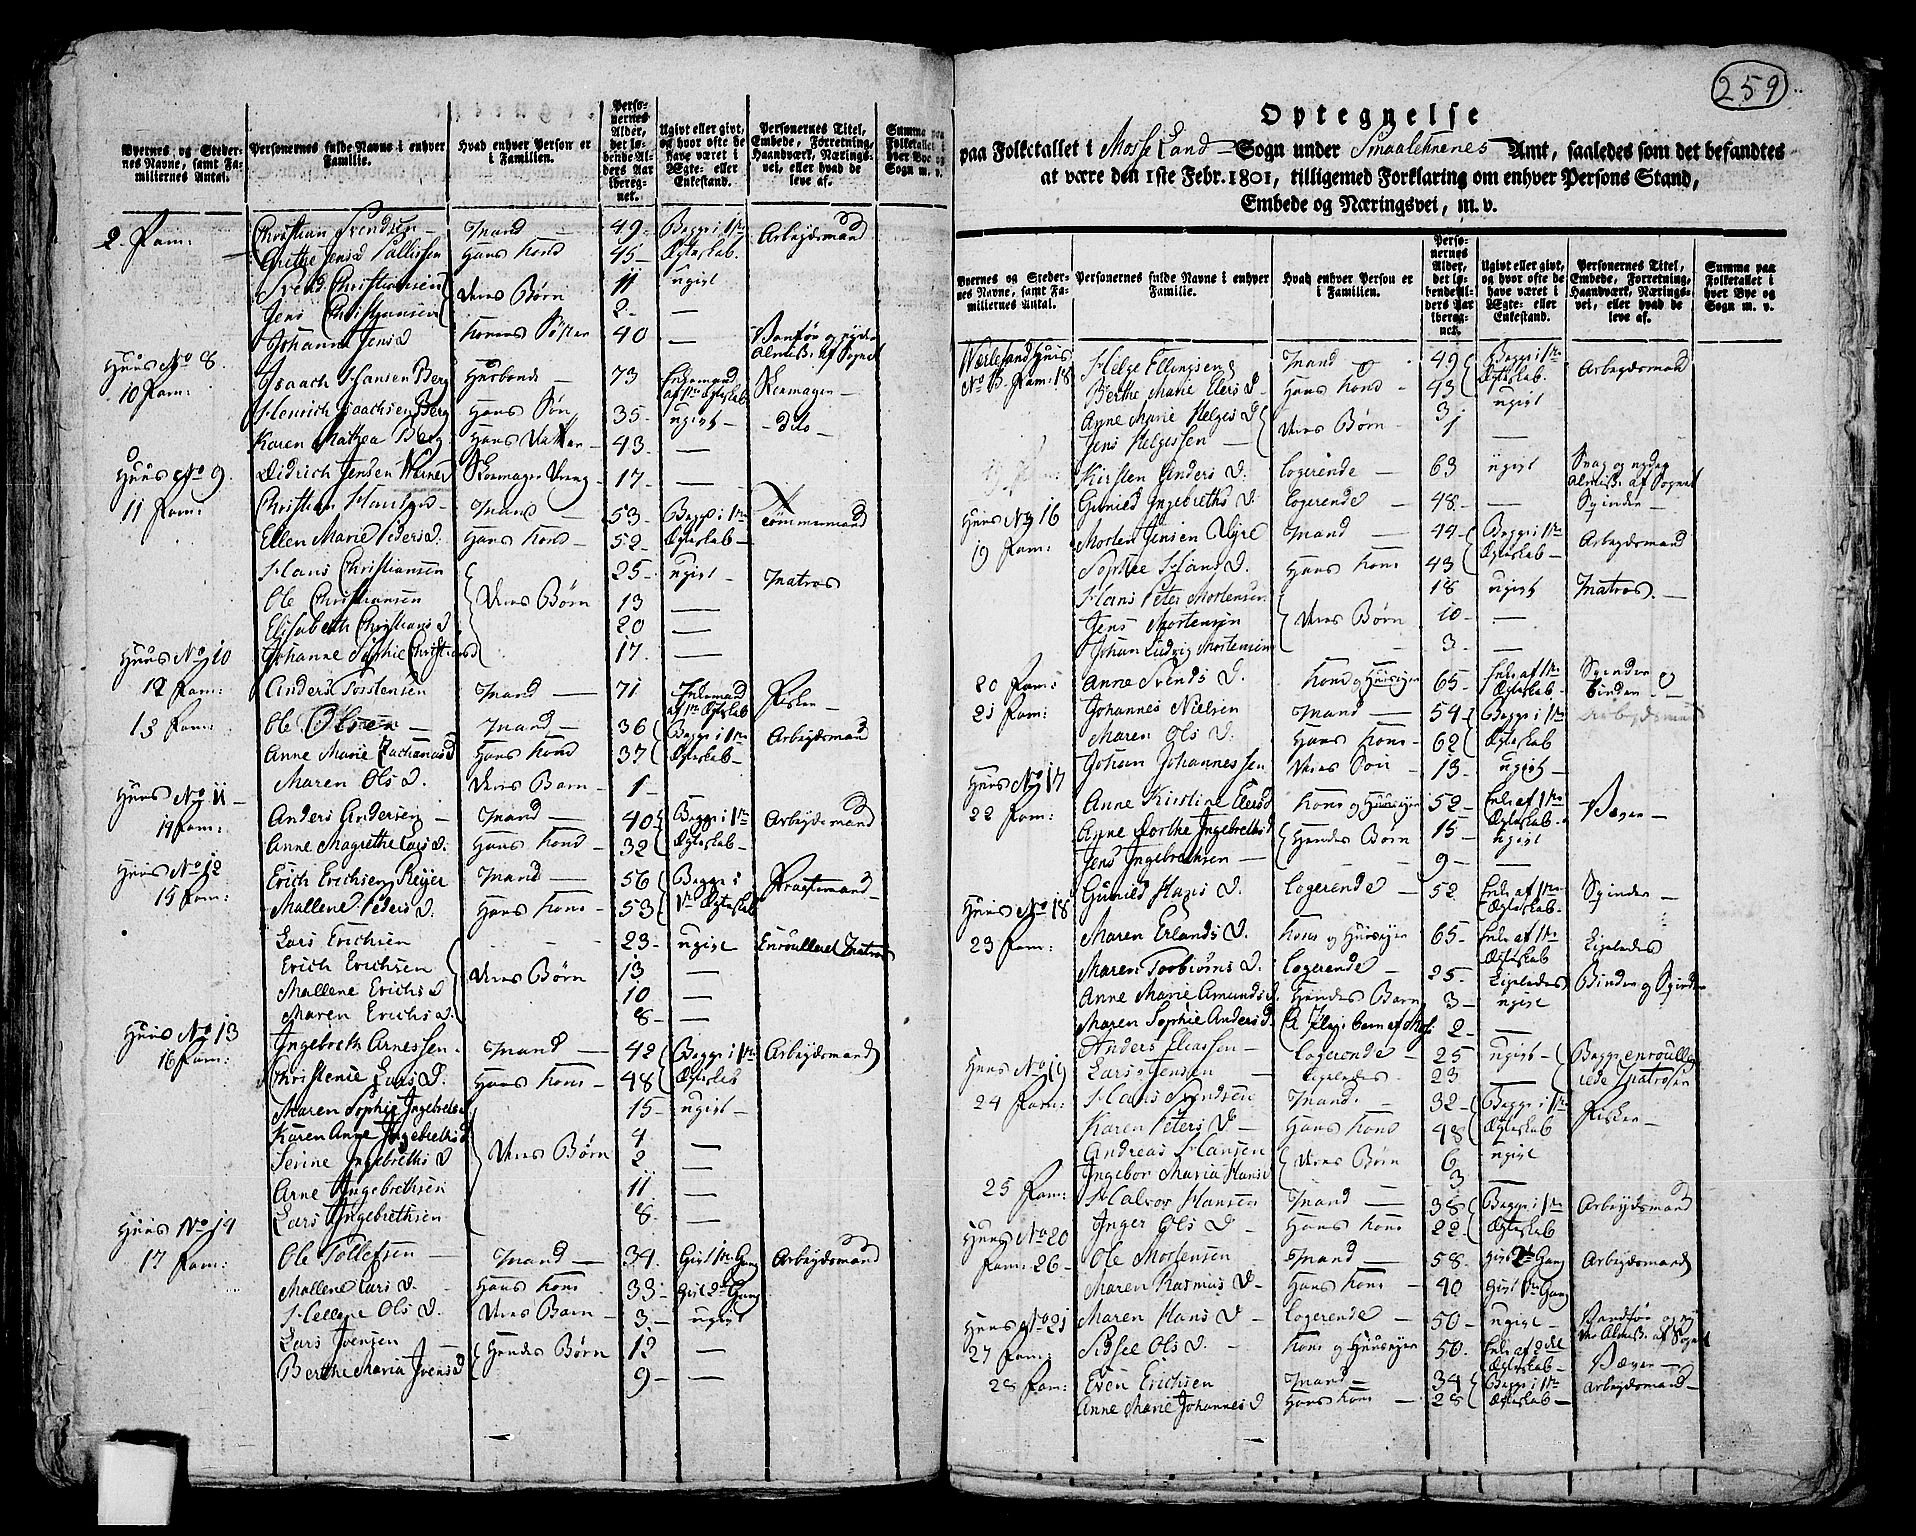 Byernes og Stedernes Navne, samt Familiernes Antal.
Personernes fulde Navne i enhver Familie.
Hvad enhver Person er i Familien.
Personernes Alder, det løbende Alders Aar iberegnet.
Ugivt eller givt, og hvor ofte de have været i Ægte- eller Enkestand.
Personernes Titel, Embede, Forretning, Haandværk, Næringsvei, eller hvad de leve af.
Summa paa Folketallet i hver Bye og Sogn m. v.
2. Fam: Christian Svendsen Mand 49 Begge i 1te Ægteskab. Arbeydsmand
Grethe Jens D Pallissen Hans Kone 45
Svend Christiansen Deres Børn 11 ugivt
Jens Christiansen 2
Johanne Jens D Konens Søster 40 Vanfør og nyder Almisse af Sognet
Huus No 8
10 Fam: Isaach Hansen Berg Husbonde 73 Enkemand af 1te Ægteskab Skomager
Henrich Isaachsen Berg Hans Søn 35 ugivt dito
Karen Mathea Berg Hans Datter 43
Huus No 9. Didrich Jensen Werner Skomager Dreng 17
11 Fam: Christian Hansen Mand 53 Begge i 1te Ægteskab Tømmermand
Ellen Marie Peders D. Hans Kone 52
Hans Christiansen Deres Børn 25 ugivt Matros
Ole Christiansen 13
Elisabeth Christians D 20
Huus No 10 Johanne Sophie Christians D 17
12 Fam: Anders Torstensen Mand 71 Enkemand af 1te Ægteskab Fisker
13 Fam: Ole Olsen Mand 36 Begge i 1te Ægteskab Arbeydsmand
Anne Marie Zachariis D Hans Kone 37
Maren Ols D. Deres Barn 1
Huus No 11
14 Fam: Anders Andersen Mand 40 Begge i 1te Ægteskab Arbeydsmand
Anne Magrethe Lars D. Hans Kone 32
Huus No 12
15 Fam: Erich Erichsen Reyer Mand 56 Begge i 1te Ægteskab
Mallene Peders D. Hans Kone 53
Lars Erichsen 23 ugivt Enroulleret Matros
Erich Erichsen Deres Børn 13
Mallene Erichs D 10
Maren Erichs D. 8
Huus No 13
16 Fam: Ingebreth Arnessen Mand 42 Begge i 1te Ægteskab Arbeydsmand
Christense Lars D. Hans Kone 48
Maren Sophie Ingebreths D 15 ugivt
Karen Anne Ingebreths D Deres Børn 4
Serine Ingebreths D 2
Arne Ingebrethsen 11
Lars Ingebrethsen 8
Huus No 14
17 Fam: Ole Tollefsen Mand 34 Givt 1te Gang Arbeydsmand
Mallene Lars D. Hans Kone 33 Givt 2den Gang
Hellene Ols D. Deres Barn 3 ugivt
Lars Ivensen Hendes Børn 12
Berthe Maria Ivens D 9
259
Optegnelse
paa Folketallet i Mosse Land Sogn under Smaalehnenes Amt, saaledes som det befandtes
at være den 1ste Febr. 1801, tilligemed Forklaring om enhver Persons Stand,
Embede og Næringsvei, m. v.
Byernes og Stedernes Navne, samt Familiernes Antal.
Personernes fulde Navne i enhver Familie.
Hvad enhver Person er i Familien.
Personernes Alder, det løbende Alders Aar iberegnet.
Ugivt eller givt, og hvor ofte de have været i Ægte- eller Enkestand.
Personernes Titel, Embede, Forretning, Haandværk, Næringsvei, eller hvad de leve af.
Summa paa Folketallet i hver Bye og Sogn m. v.
Værlesand Huus Helge Ellingsen Mand 49 Begge i 1te Ægteskab. Arbeydsmand
Fam: 18 Berthe Marie Elers D Hans Kone 43
Anne Marie Helges D Deres Børn 3 ugivt
Jens Helgessen 1
Kirsten Anders D. Logerende 63 ugivt Svag og nyder Almisse af Sognet
Gunild Ingebreths D. Logerende 48 Spinder
Huus No 16
19 Fam: Morten Jensen Mand 44 Begge i 1te Ægteskab Arbeydsmand
Sophie Hans D. Hans Kone 43
Hans Peter Mortensen 18 ugivt Matros
Jens Mortensen Deres Børn 10
Johan Ludvig Mortensen 3
20 Fam: Anne Svends D. Kone og Huuseyer 65 Enke af 1te Ægteskab Spinder og Binder
21 Fam: Johannes Nielsen Mand 54 Begge i 1te Ægteskab Arbeydsmand
Maren Ols D. Hans Kone 62
Johan Johannessen Deres Søn 13 ugivt
Huus No 17
22 Fam: Anne Kirstine Elers D Kone og Huuseyer 52 Enke af 1te Ægteskab Væver
Anne Dorthe Ingebreths D Hendes Børn 15 ugivt
Jens Ingebrethsen 9
Gunild Hans D. Logerende 52 Enke af 1te Ægteskab Spinder
Huus No 18
23 Fam: Maren Erlands D. Kone og Huuseyer 65 Enke af 1te Ægteskab Ligeledes
Maren Torbiørns D. Logerende 25 Ligeledes Binder og Spinder
Anne Marie Amunds D Hendes Barn 3 ugivt
Maren Sophie Anders D. Et Pleje barn af Moss 2
Anders Eliassen Logerende 25 ugivt Begge enroullerede Matroser
Huus No 19 Lars Jensen Ligeledes 23
24 Fam: Hans Svendsen Mand 32 Begge i 1te Ægteskab Fisker
Karen Peters D Hans Kone 48
Andreas Hansen Deres Børn 6 ugivt
Ingebor Maria Hans D 3
25 Fam: Halvor Hansen Mand 38 Begge i 1te Ægteskab Arbeydsmand
Inger Ols D Hans Kone 22
Huus No 20
Fam: 26 Ole Mortensen Mand 58 Givt 2den Gang Arbeydsmand
Maren Rasmus D Hans Kone 40 Givt 1te Gang
Maren Hans D Logerende 50 ugivt Vanfør og nyder Almisse af Sognet
Huus No 21
27 Fam: Sidsel Ols D. Kone og Huuseyer 50 Enke af 2det Ægteskab Væver
28 Fam: Even Erichsen Mand 34 Begge i 1te Ægteskab Arbeydsmand
Anne Marie Johannes D Hans Kone 28